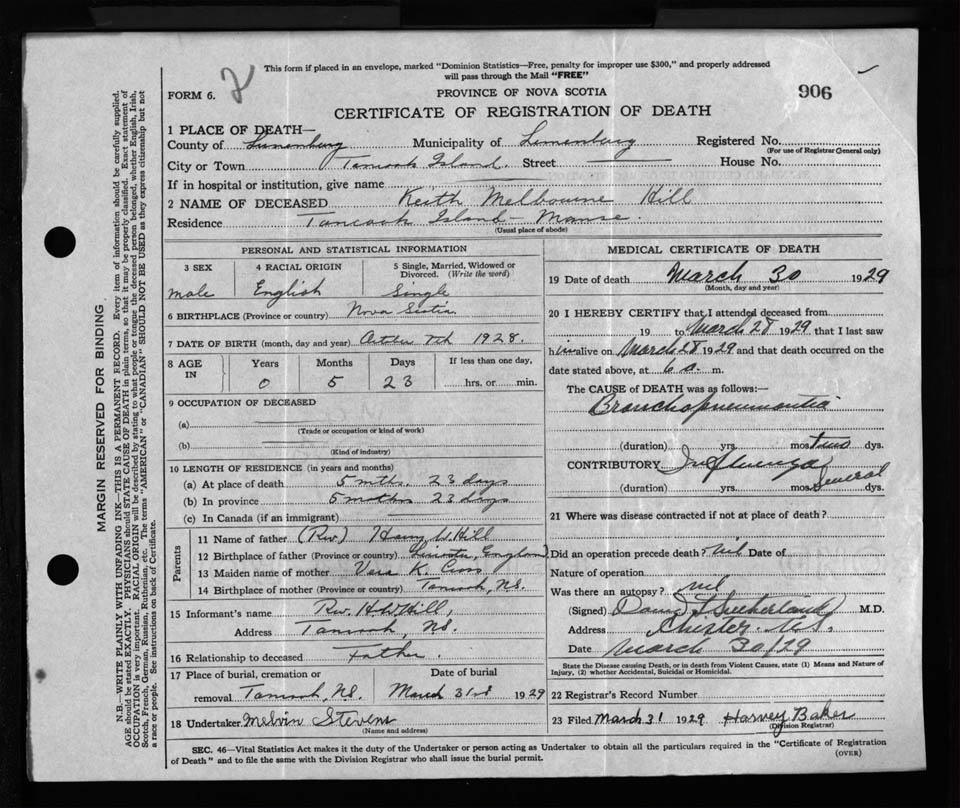 This form if placed in an envelope, marked "Dominion Statistics—Free, penalty for improper use $300," and properly addressed
will pass through the Mail "FREE"
FORM 6. 2
PROVINCE OF NOVA SCOTIA
906
CERTIFICATE OF REGISTRATION OF DEATH
1 PLACE OF DEATH—
County of Lunenburg Municipality of Lunenburg Registered No.
(For use of Registrar General only)
City or Town Tancook Island. Street House No.
If in hospital or institution, give name
2 NAME OF DECEASED Keith Melbourne Hill
Residence Tancook Island - Manse.
(Usual place of abode)
PERSONAL AND STATISTICAL INFORMATION
3 SEX 4 RACIAL ORIGIN 5 Single, Married, Widowed or Divorced. (Write the word)
male English Single
6 BIRTHPLACE (Province or country) Nova Scotia
7 DATE OF BIRTH (month, day and year) October 7th 1928.
8 AGE IN Years Months Days If less than one day,
0 5 23 hrs. or min.
9 OCCUPATION OF DECEASED
(a)
(Trade or occupation or kind of work)
(b)
(Kind of industry)
10 LENGTH OF RESIDENCE (in years and months)
(a) At place of death 5 mths. 23 days
(b) In province 5 mths 23 days
(c) In Canada (if an immigrant)
Parents
11 Name of father (Rev.) Harry W. Hill
12 Birthplace of father (Province or country) England
13 Maiden name of mother Vera K. Cross
14 Birthplace of mother (Province or country) Tancook, N.S.
15 Informant's name Rev. H.W. Hill,
Address Tancook, N.S.
16 Relationship to deceased Father.
17 Place of burial, cremation or Date of burial
removal Tancook, N.S. March 31st 1929
18 Undertaker Melvin Stevens
(Name and address)
MEDICAL CERTIFICATE OF DEATH
19 Date of death March 30 1929
(Month, day and year)
20 I HEREBY CERTIFY that I attended deceased from
19 to March 28 1929 that I last saw
him alive on March 28 1929 and that death occurred on the
date stated above, at 6 a. m.
The CAUSE of DEATH was as follows:—
Bronchopneumonia
(duration) yrs. mos. two dys.
CONTRIBUTORY Influenza
(duration) yrs. mos. several dys.
21 Where was disease contracted if not at place of death?
Did an operation precede death? nil Date of
Nature of operation
Was there an autopsy? nil
(Signed) Sutherland M.D.
Address Chester. N.S.
Date March 30/29
State the Disease causing Death, or in death from Violent Causes, state (1) Means and Nature of
Injury, (2) whether Accidental, Suicidal or Homicidal.
22 Registrar's Record Number
23 Filed March 31 1929 Harvey Baker
(Division Registrar)
SEC. 46—Vital Statistics Act makes it the duty of the Undertaker or person acting as Undertaker to obtain all the particulars required in the "Certificate of Registration
of Death" and to file the same with the Division Registrar who shall issue the burial permit.
(OVER)
MARGIN RESERVED FOR BINDING
N.B.—WRITE PLAINLY WITH UNFADING INK—THIS IS A PERMANENT RECORD. Every item of information should be carefully supplied.
AGE should be stated EXACTLY. PHYSICIANS should STATE CAUSE OF DEATH in plain terms, so that it may be properly classified. Exact statement of
OCCUPATION is very important. RACIAL ORIGIN will be described by stating to what people or tongue the deceased person belonged, whether English, Irish,
Scotch, French, German, Russian, Ruthenian, etc. The terms "AMERICAN" or "CANADIAN" SHOULD NOT BE USED as they express citizenship but not
a race or people. See instructions on back of Certificate.